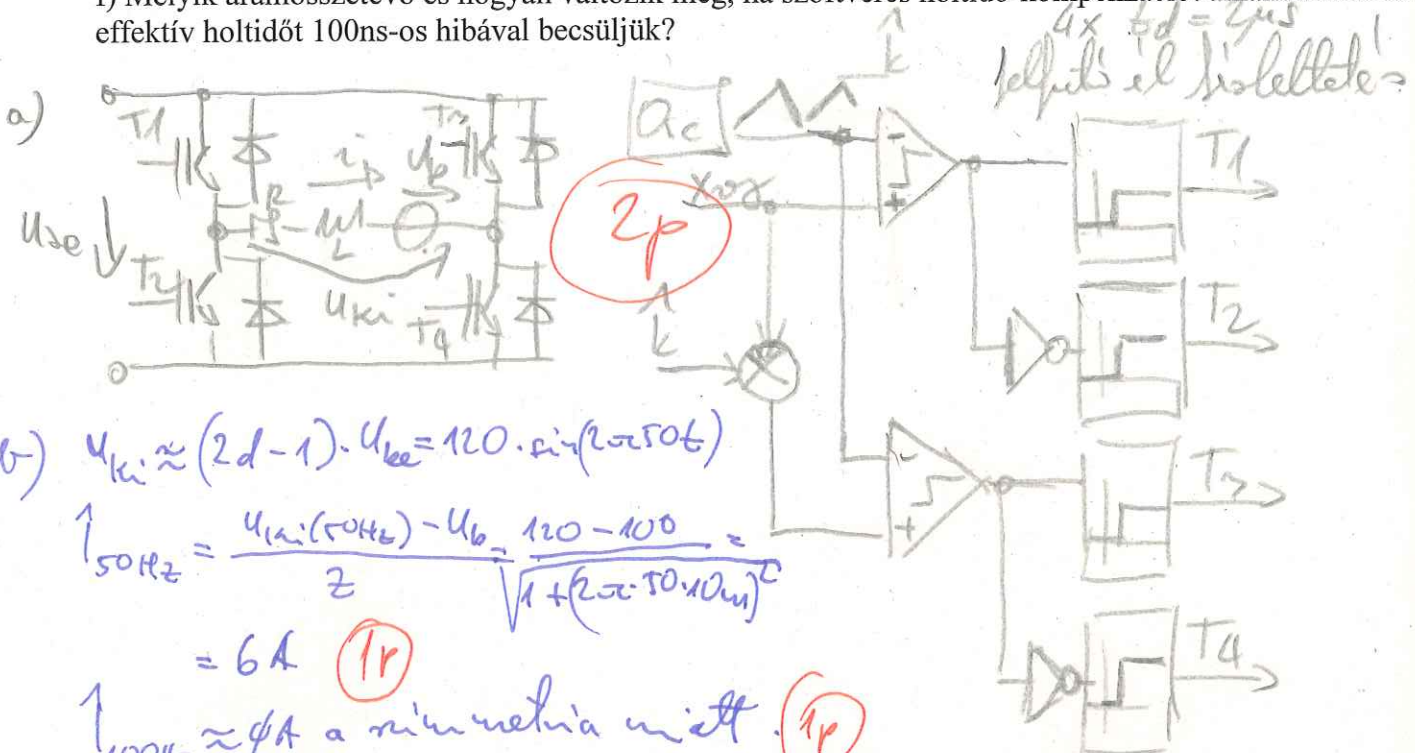 effektív holtidőt 100ns-os hibával becsüljük?
4x td = 2μs
felfutó él
a)
T1
T3
R
i
Ub
L
Ube
T2
Uki
T4
ac
k
2p
T1
T2
T3
T4
k
b) Uki ≈ (2d-1)·Ube = 120·sin(2π50t)
Î50Hz = Uki(50Hz) - Ub / Z = 120 - 100 / √1+(2π·50·10m)² =
= 6A 1p
≈ ∅A a szimmetria miatt. 1p